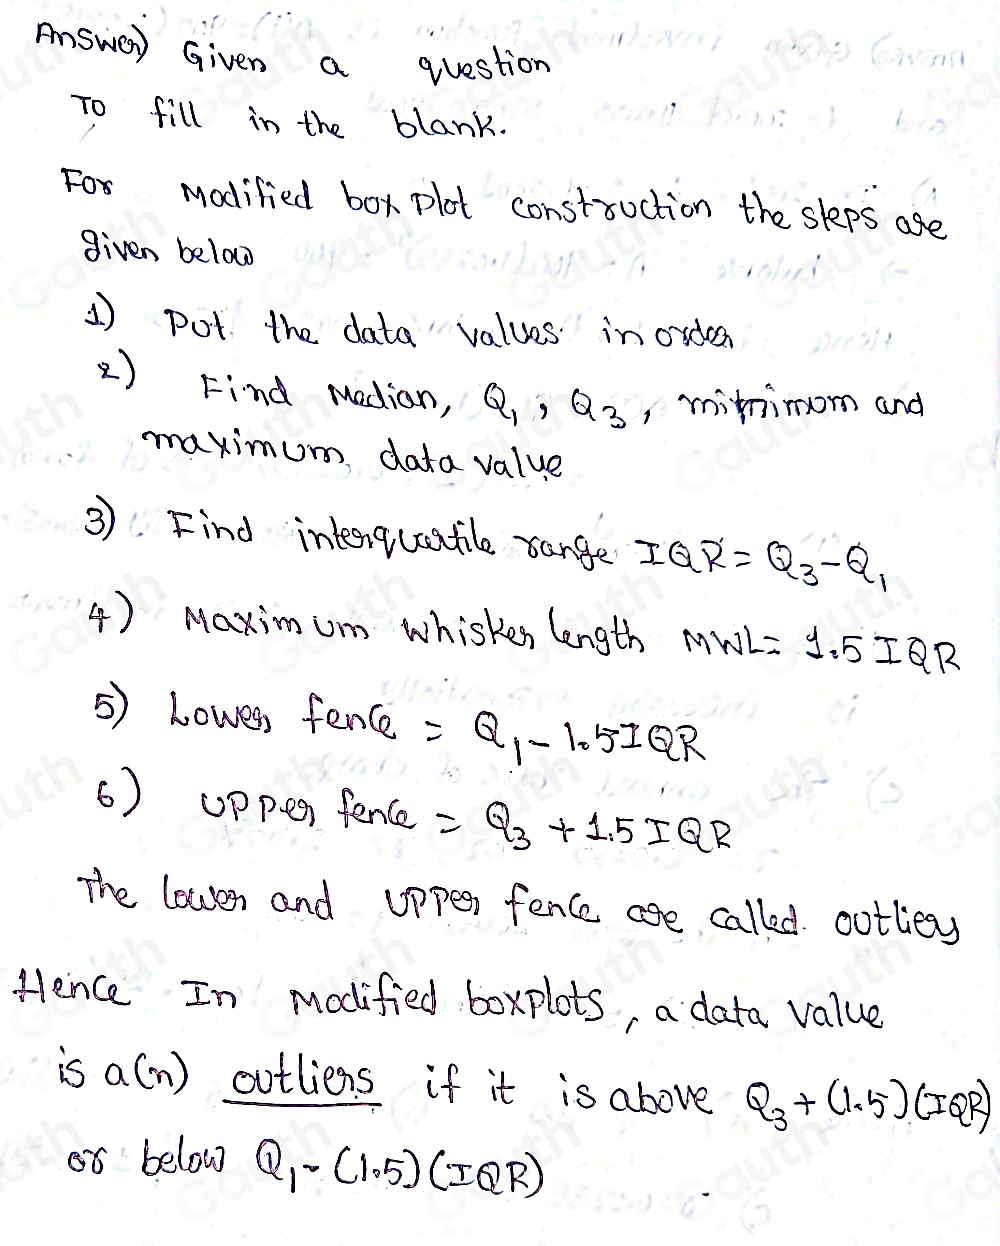 Answer) Given a question
To fill in the blank.
For Modified box plot construction the steps are
given below
1) Put the data values in order
2) Find Median, Q₁, Q₃, minimum and
maximum data value
3) Find interquartile range IQR = Q₃-Q₁
4) Maximum whisker length MWL= 1.5 IQR
5) Lower fence = Q₁- 1.5IQR
6) Upper fence = Q₃ + 1.5 IQR
The lower and upper fence are called outliers
Hence In Modified boxplots, a data value
is a(n) outliers if it is above Q₃+(1.5)(IQR)
or below Q₁-(1.5)(IQR)